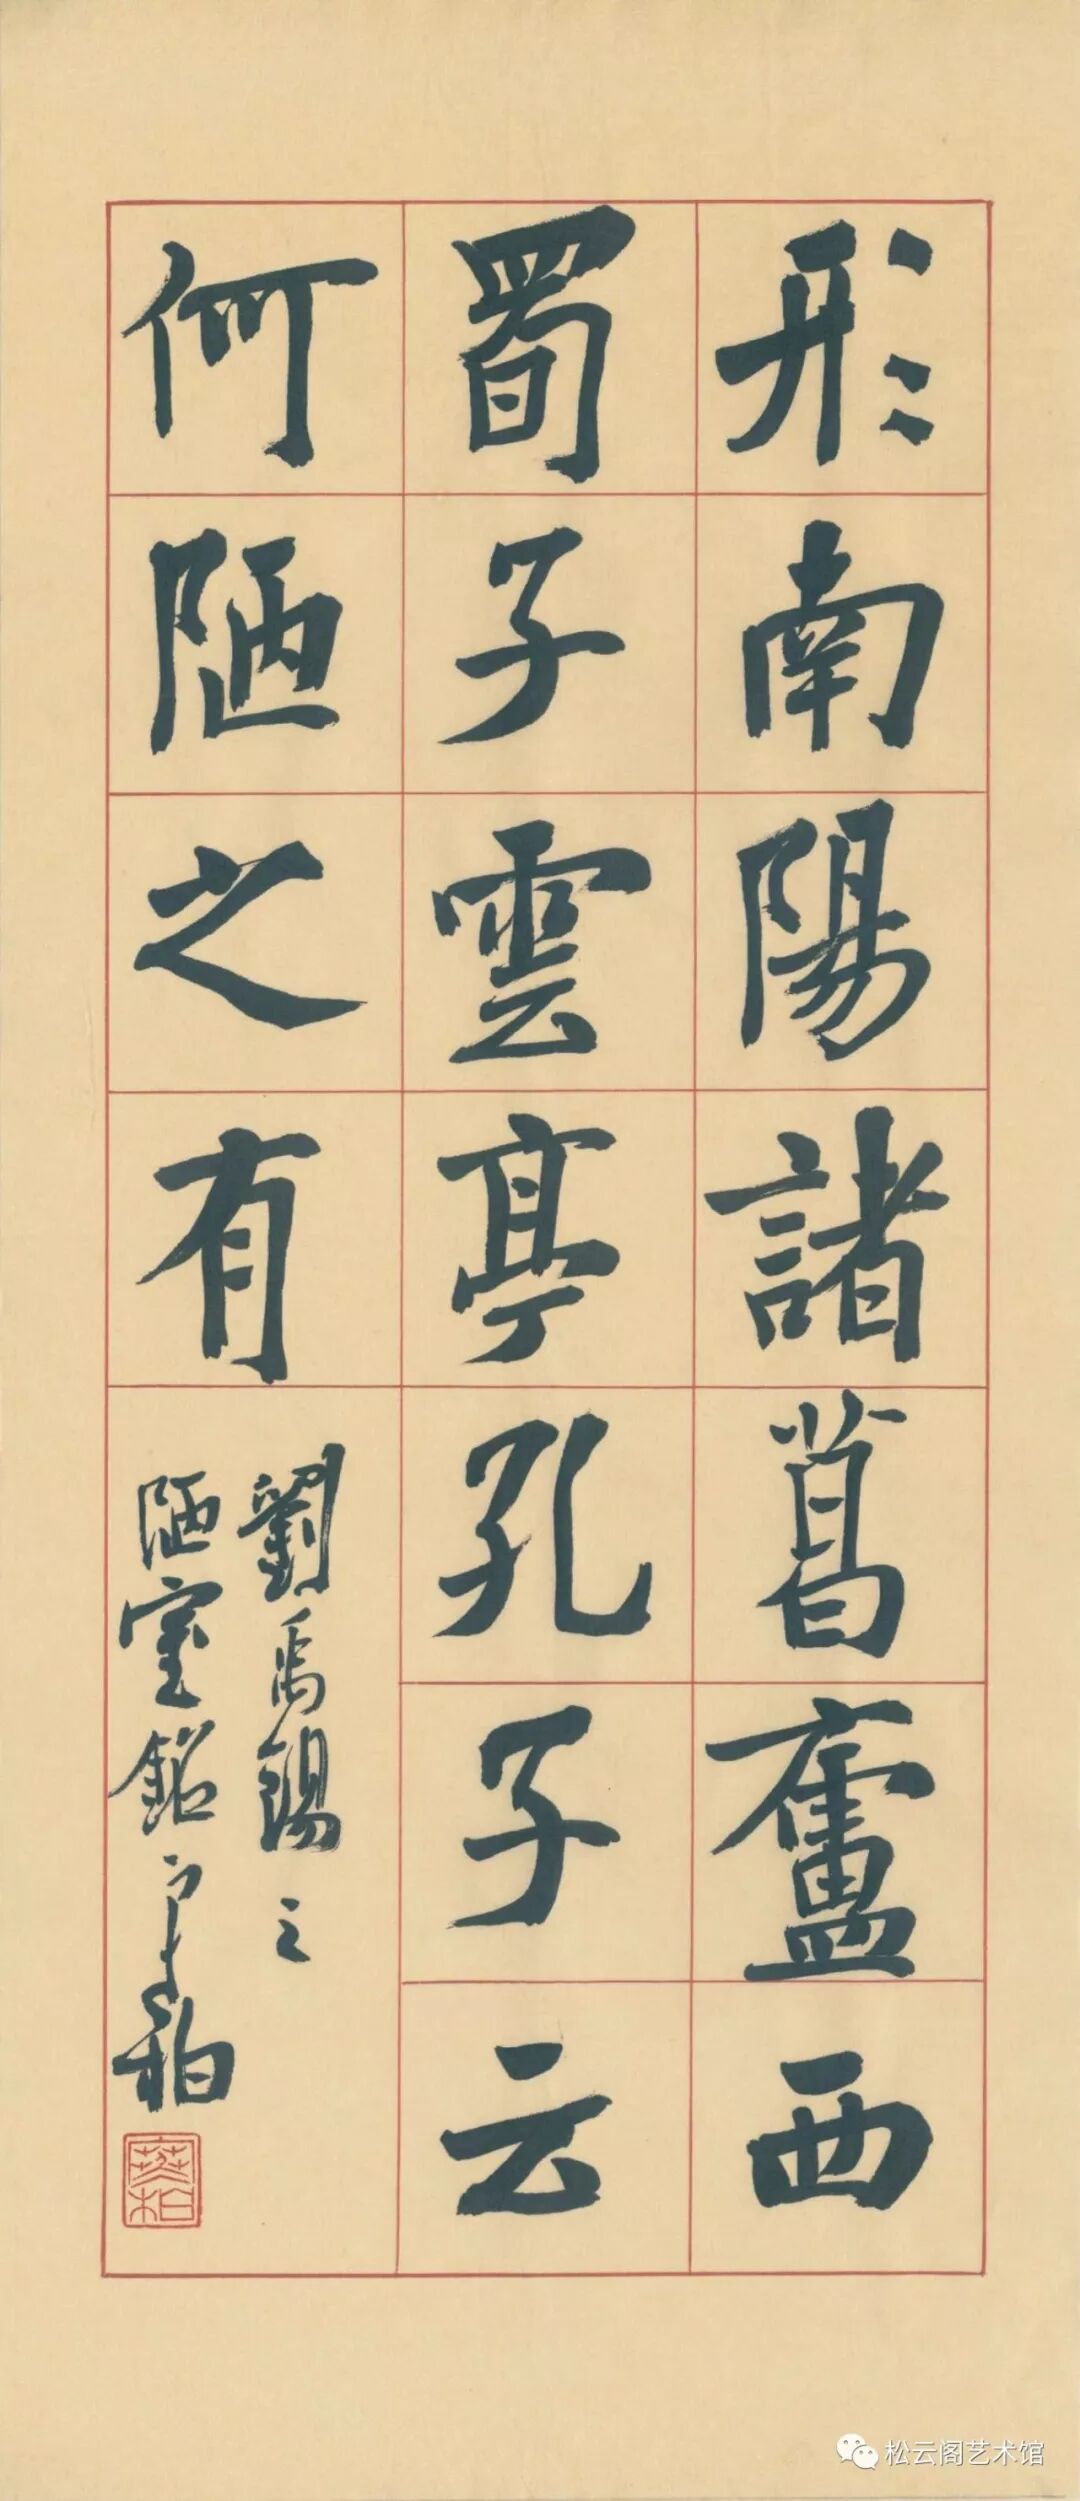 形南陽諸葛廬西
蜀子雲亭孔子云
何陋之有
劉禹錫之
陋室銘
柏
松云阁艺术馆